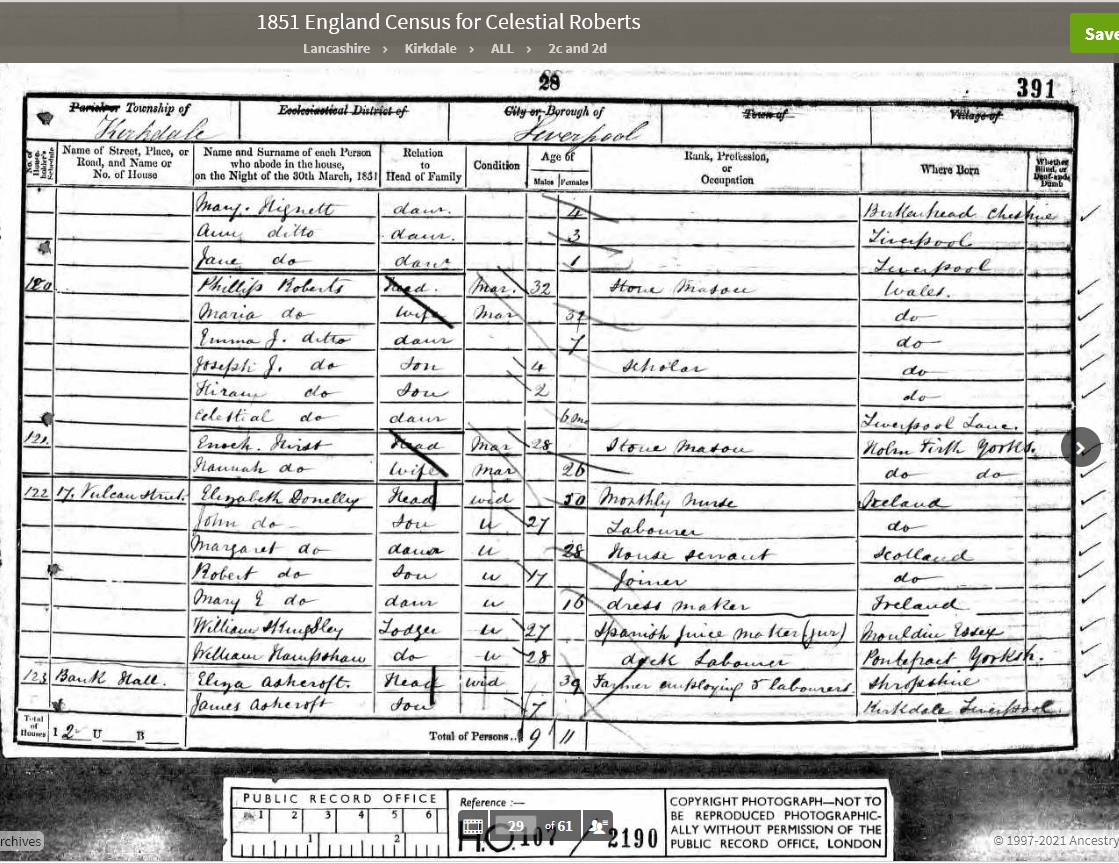 1851 England Census for Celestial Roberts
Lancashire › Kirkdale › ALL › 2c and 2d
Save
28
391
Parish or Township of
Ecclesiastical District of
City or Borough of
Town of
Village of
Kirkdale
Liverpool
No. of House-holder's Schedule
Name of Street, Place, or Road, and Name or No. of House
Name and Surname of each Person who abode in the house, on the Night of the 30th March, 1851
Relation to Head of Family
Condition
Age of
Males
Females
Rank, Profession, or Occupation
Where Born
Whether Blind, or Deaf-and-Dumb
Mary. Hignett daur. 4 Birkenhead Cheshire
Ann ditto daur. 3 Liverpool
Jane do daur 1 Liverpool
120 Phillip Roberts Head. Mar. 32 Stone Mason Wales.
Maria do Wife Mar 37 do
Emma J. ditto daur 7 do
Joseph J. do Son 4 Scholar do
Hiram do Son 2 do
Celestial do daur 6m Liverpool Lanc.
121. Enoch. Hirst Head Mar 28 Stone Mason Holm Firth Yorks.
Hannah do Wife Mar 26 do do
122 17. Vulcan Street. Elizabeth Donelly Head wid 50 Monthly Nurse Ireland
John do Son u 27 Labourer do
Margaret do daur u 28 House servant Scotland
Robert do Son u 17 Joiner do
Mary E do daur u 16 dress maker Ireland
William Lodger u 27 Spanish juice maker (jur) Essex
William Hampshaw do u 28 dock Labourer Pontefract Yorksh.
123 Bank Hall. Eliza Ashcroft. Head wid 39 Farmer employing 5 labourers Shropshire
James Ashcroft Son 7 Kirkdale Liverpool
Total of Houses.. I 2 U B Total of Persons.. 9 11
PUBLIC RECORD OFFICE
1 2 3 4 5 6
1 2
Reference :—
29 of 61
H.O. 107 / 2190
COPYRIGHT PHOTOGRAPH—NOT TO
BE REPRODUCED PHOTOGRAPHIC-
ALLY WITHOUT PERMISSION OF THE
PUBLIC RECORD OFFICE, LONDON
rchives
© 1997-2021 Ancestry